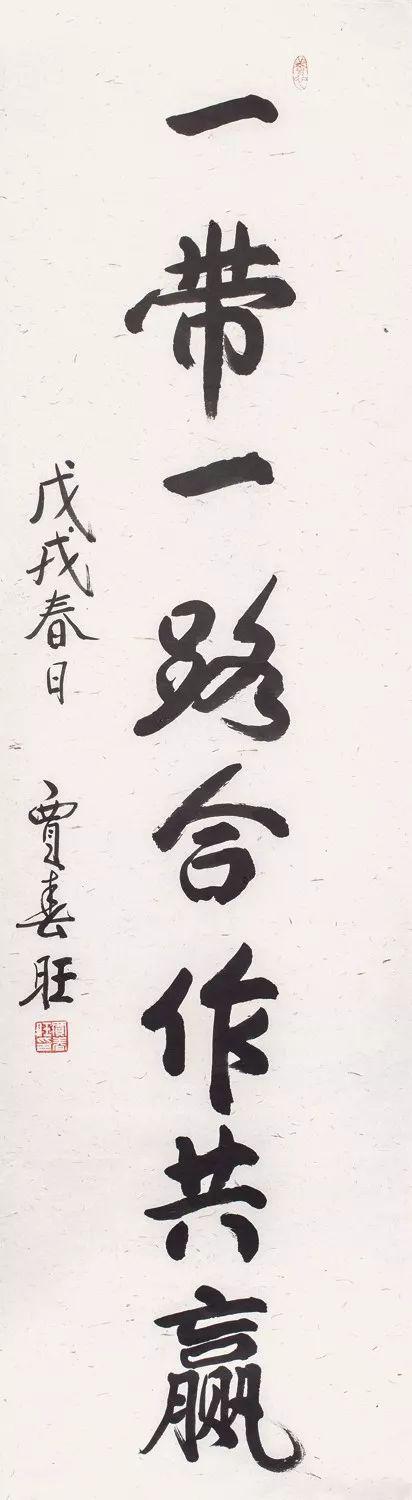 一带一路合作共赢
戊戌春日
贾春旺